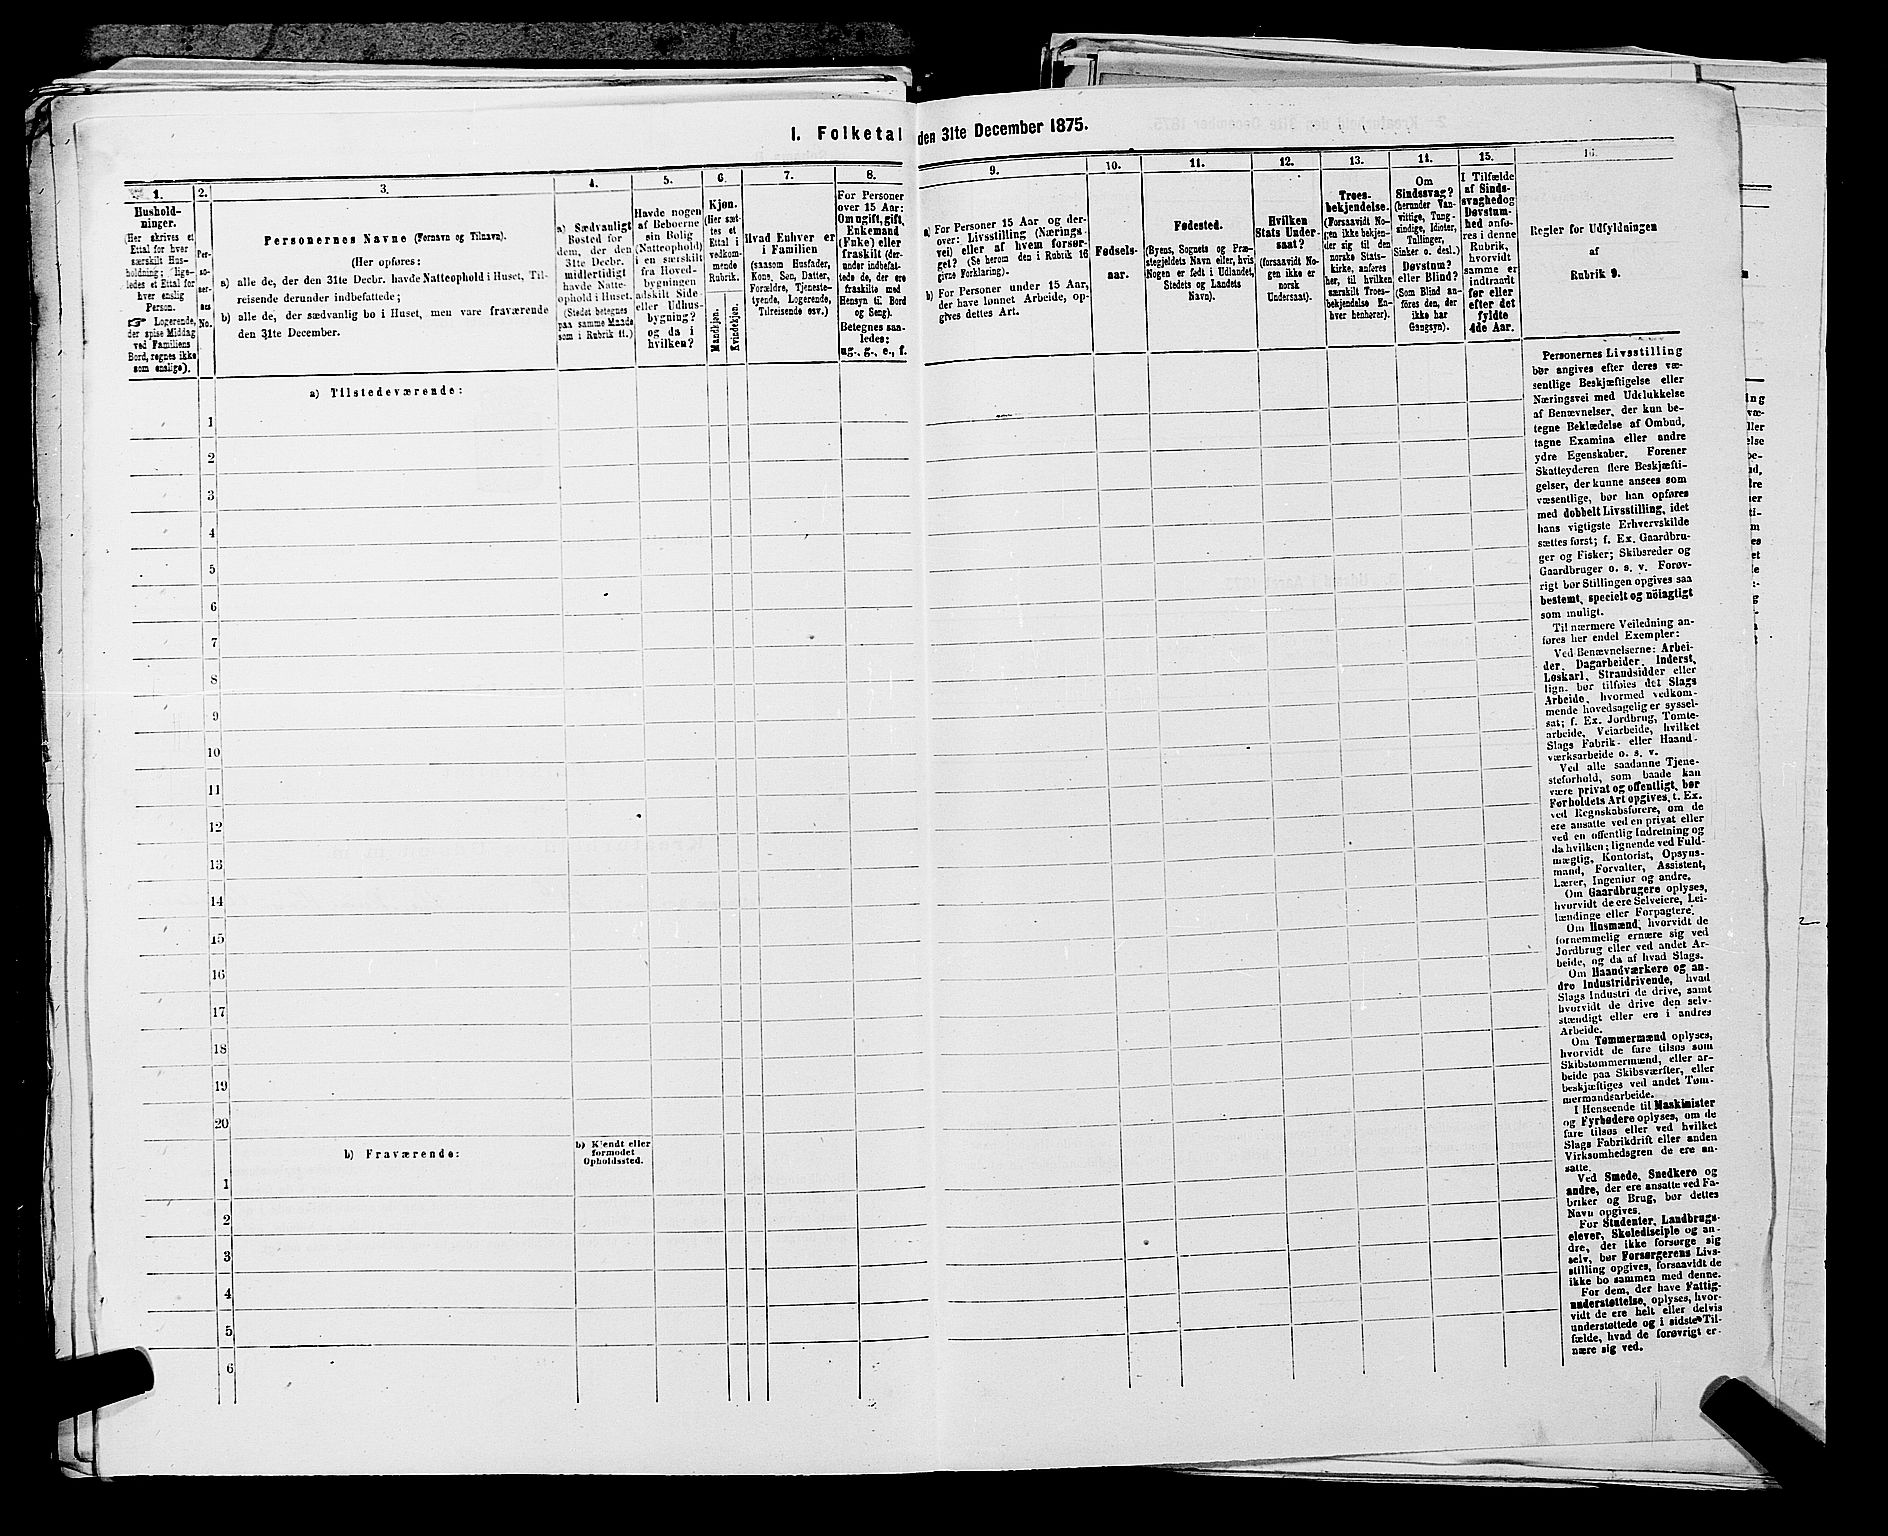 I. Folketal den 31te December 1875.
1.
Hushold-
ninger.
(Her skrives et
Ettal for hver
særskilt Hus-
holdning; lige-
ledes et Ettal for
hver enslig
Person.
☞ Logerende,
der spise Middag
ved Familiens
Bord, regnes ikke
som enslige).
2.
Per-
so-
ner-
nes
No.
3.
Personernes Navne (Fornavn og Tilnavn).
(Her opføres:
a) alle de, der den 31te Decbr. havde Natteophold i Huset, Til-
reisende derunder indbefattede;
b) alle de, der sædvanlig bo i Huset, men vare fraværende
den 31te December.
4.
a) Sædvanligt
Bosted for
dem, der den
31te Decbr.
midlertidigt
havde Natte-
ophold i Huset.
(Stedet betegnes
paa samme Maade
som i Rubrik 11.)
5.
Havde nogen
af Beboerne
sin Bolig
(Natteophold)
i en særskilt
fra Hoved-
bygningen
adskilt Side
eller Udhus-
bygning?
og da i
hvilken?
6.
Kjøn.
(Her sæt-
tes et
Ettal i
vedkom-
mende
Rubrik.
Mandkjøn.
Kvindekjøn.
7.
Hvad Enhver er
i Familien
(saasom Husfader,
Kone, Søn, Datter,
Forældre, Tjeneste-
tyende, Logerende,
Tilreisende osv.)
8.
For Personer
over 15 Aar:
Om ugift, gift,
Enkemand
(Enke) eller
fraskilt (der-
under indbefat-
tede de, der ere
fraskilte med
Hensyn til Bord
og Seng).
Betegnes saa-
ledes:
ug., g., e., f.
9.
a) For Personer 15 Aar og der-
over: Livsstilling (Nærings-
vei) eller af hvem forsør-
get? (Se herom den i Rubrik 16
givne Forklaring).
b) For Personer under 15 Aar,
der have lønnet Arbeide, op-
gives dettes Art.
10.
Fødsels-
aar.
11.
Fødested.
(Byens, Sognets og Præ-
stegjeldets Navn eller, hvis
Nogen er født i Udlandet,
Stedets og Landets
Navn).
12.
Hvilken
Stats Under-
saat?
(forsaavidt No-
gen ikke er
norsk
Undersaat).
13.
Troes-
bekjendelse.
(Forsaavidt No-
gen ikke bekjen-
der sig til den
norske Stats-
kirke, anføres
her, til hvilken
særskilt Troes-
bekjendelse En-
hver henhører).
14.
Om
Sindssvag?
(herunder Van-
vittige, Tung-
sindige, Idioter,
Tullinger,
Sinker o. desl.)
Døvstum?
eller Blind?
(Som Blind an-
føres den, der
ikke har
Gangsyn).
15.
I Tilfælde
af Sinds-
svaghed og
Døvstum-
hed anfø-
res i denne
Rubrik,
hvorvidt
samme er
indtraadt
før eller
efter det
fyldte
4de Aar.
16.
Regler for Udfyldningen
af
Rubrik 9.
a) Tilstedeværende:
1
2
3
4
5
6
7
8
9
10
11
12
13
14
15
16
17
18
19
20
b) Fraværende:
b) Kjendt eller
formodet
Opholdssted.
1
2
3
4
5
6
Personernes Livsstilling
bør angives efter deres væ-
sentlige Beskjæftigelse eller
Næringsvei med Udelukkelse
af Benævnelser, der kun be-
tegne Beklædelse af Ombud,
tagne Examina eller andre
ydre Egenskaber. Forener
Skatteyderen flere Beskjæfti-
gelser, der kunne ansees som
væsentlige, bør han opføres
med dobbelt Livsstilling, idet
hans vigtigste Erhvervskilde
sættes først; f. Ex. Gaardbru-
ger og Fisker; Skibsreder og
Gaardbruger o. s. v. Forøv-
rigt bør Stillingen opgives saa
bestemt, specielt og nöiagtigt
som muligt.
Til nærmere Veiledning an-
føres her endel Exempler:
Ved Benævnelserne: Arbei-
der, Dagarbeider, Inderst,
Løskarl, Strandsidder eller
lign. bør tilføies det Slags
Arbeide, hvormed vedkom-
mende hovedsagelig er syssel-
sat; f. Ex. Jordbrug, Tomte-
arbeide, Veiarbeide, hvilket
Slags Fabrik- eller Haand-
værksarbeide o. s. v.
Ved alle saadanne Tjene-
steforhold, som baade kan
være privat og offentligt, bør
Forholdets Art opgives, t. Ex.
ved Regnskabsførere, om de
ere ansatte ved en privat eller
ved en offentlig Indretning og
da hvilken; lignende ved Fuld-
mægtig, Kontorist, Opsyns-
mand, Forvalter, Assistent,
Lærer, Ingeniør og andre.
Om Gaardbrugere oplyses,
hvorvidt de ere Selveiere, Lei-
lændinge eller Forpagtere.
Om Husmænd, hvorvidt de
fornemmelig ernære sig ved
Jordbrug eller ved andet Ar-
beide, og da af hvad Slags.
Om Haandværkere og an-
dre Industridrivende, hvad
Slags Industri de drive, samt
hvorvidt de drive den selv-
stændigt eller ere i andres
Arbeide.
Om Tømmermænd oplyses,
hvorvidt de fare tilsøs som
Skibstømmermænd, eller ar-
beide paa Skibsværfter, eller
beskjæftiges ved andet Tøm-
mermandsarbeide.
I Henseende til Maskinister
og Fyrbødere oplyses, om de
fare tilsøs eller ved hvilket
Slags Fabrikdrift eller anden
Virksomhedsgren de ere an-
satte.
Ved Smede, Snedkere og
andre, der ere ansatte ved Fa-
briker og Brug, bør dettes
Navn opgives.
For Studenter, Landbrugs-
elever, Skoledisciple og an-
dre, der ikke forsørge sig
selv, bør Forsørgerens Livs-
stilling opgives, forsaavidt de
ikke bo sammen med denne.
For dem, der have Fattig-
understøttelse, oplyses, hvor-
vidt de ere helt eller delvis
understøttede og i sidste Til-
fælde, hvad de forøvrigt er-
nære sig ved.